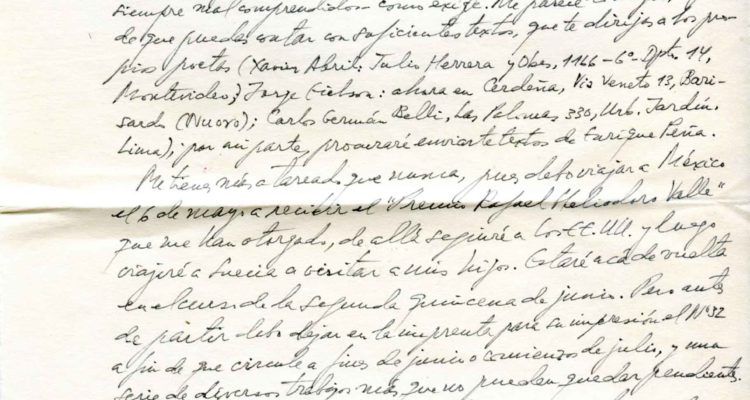 siempre mal comprendidos como exige. Me parece
do que puedas contar con suficientes textos, que te dirijas a los pro-
pios poetas (Xavier Abril: Julio Herrera y Obes, 1166-6º-Dpto. 14,
Montevideo; Jorge Eielson: ahora en Cerdeña, Via Veneto 13, Bari-
sardo (Nuoro); Carlos Germán Belli, Las Palomas 330, Urb. Jardín,
Lima); por mi parte, procuraré enviarte textos de Enrique Peña.
Me tienes más atareado que nunca, pues debo viajar a México
el 6 de mayo a recibir el "Premio Rafael Heliodoro Valle"
que me han otorgado, de allá seguiré a Los EE.UU. y luego
viajaré a Suecia a visitar a mis hijos. Estaré acá de vuelta
en el curso de la segunda quincena de junio. Pero antes
de partir debo dejar en la imprenta para su impresión el Nº 32
a fin de que circule a fines de junio o comienzos de julio, y una
serie de diversos trabajos más que no pueden quedar pendientes.